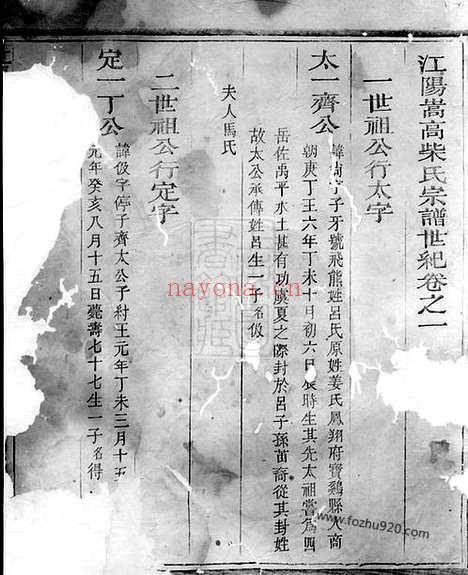 江陽嵩高柴氏宗譜世紀卷之一
一世祖公行太字
太一齊公
諱尚字子牙號飛熊姓呂氏原姓姜氏鳳翔府寶鷄縣人商
朝庚丁王六年丁未十月初六日辰時生其先太祖嘗為四
岳佐禹平水土甚有功虞夏之際封於呂子孫苗裔從其封姓
故太公承傳姓呂生一子名伋
夫人馬氏
二世祖公行定字
定一丁公
諱伋字停子齊太公子紂王元年丁未三月十五
元年癸亥八月十五日薨壽七十七生一子名得
nayona.cn
www.fozhu920.com